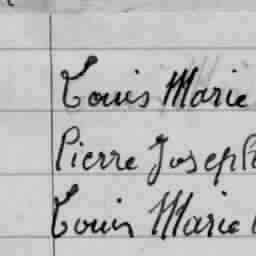 Louis Marie
Pierre Joseph
Louis Marie